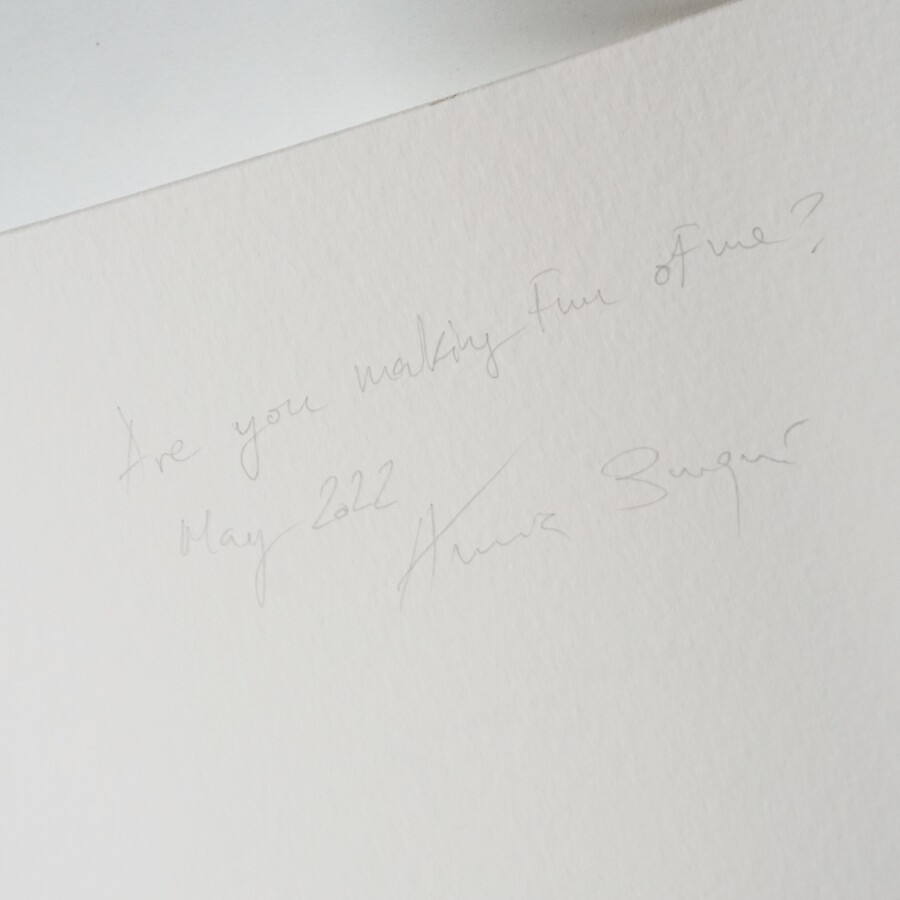 Are you making Fun of me?
May 2022 Anna